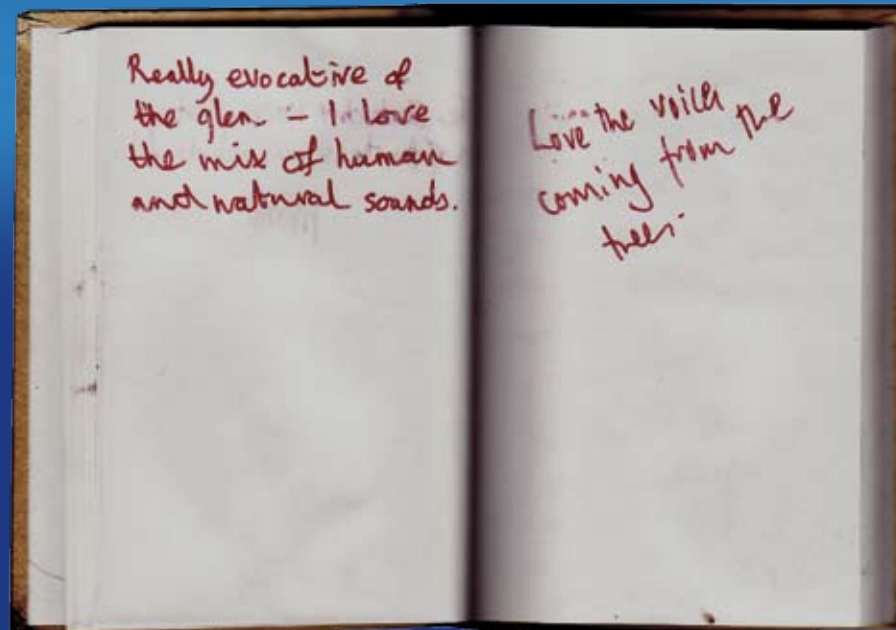 Really evocative of
the glen – I love
the mix of human
and natural sounds.
Love the voices
coming from the
trees.